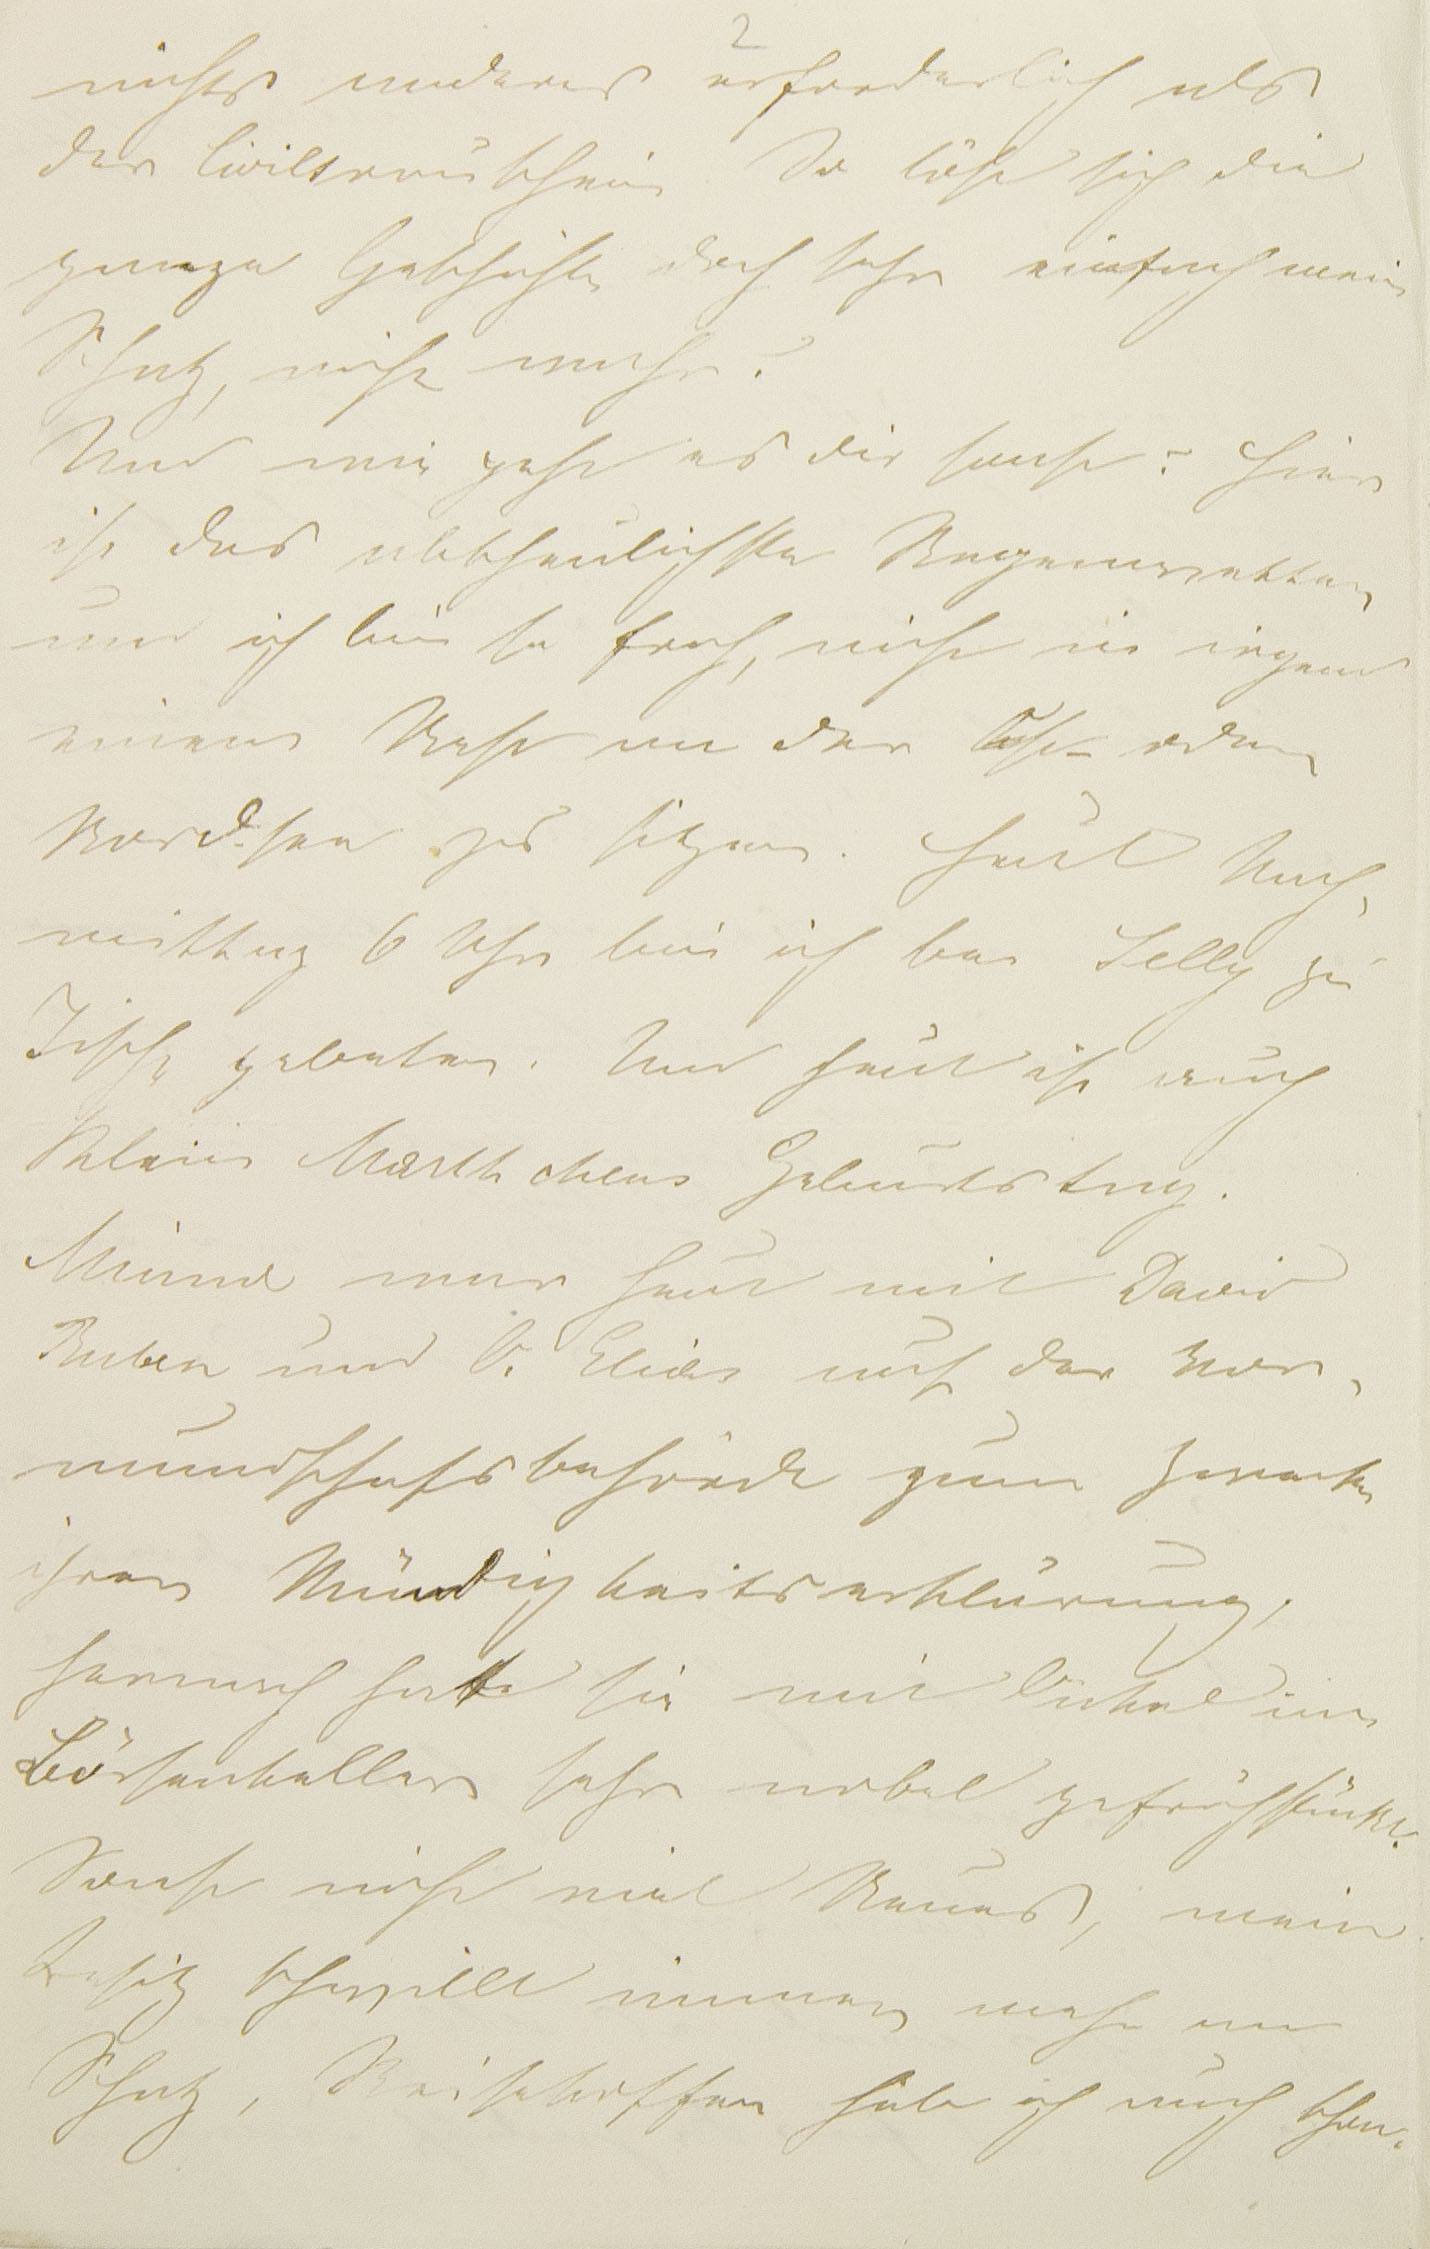 2
nichts anderes erforderlich als
der Civiltrauschein. So löst sich die
ganze Geschichte doch sehr einfach mein
Schatz, nicht wahr?
Und wie geht es dir sonst? Hier
ist das abscheulichste Regenwetter
und ich bin so froh, nicht in irgend
einem Nest an der Ost- oder
Nordsee zu sitzen. Heut Nach-
mittag 6 Uhr bin ich bei Selly zu
Tische gebeten. Und heut ist auch
klein Marthchens Geburtstag.
Minna war heut mit David
Ruben und O. Elias auf der Vor-
mundschaftsbehörde zum Zwecke
ihrer Mündigkeitserklärung,
hernach hatte sie mit Onkel im
Börsenkeller sehr nobel gefrühstückt.
Sonst nicht viel Neues, mein
Besitz schwillt immer mehr an
Schatz, Reisekoffer hab ich auch schon.